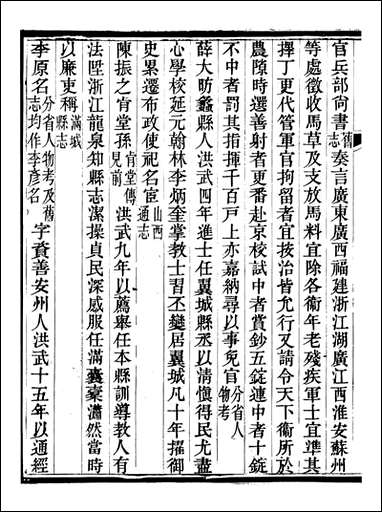 官兵部尚書舊志奏言廣東廣西福建浙江湖廣江西淮安蘇州
等處徵收馬草及支放馬料宜除各衞年老殘疾軍士宜準其
擇丁更代管軍官拘留者宜按治皆允行又請令天下衞所於
農隙時選善射者更番赴京校試中者賞鈔五錠連中者十錠
不中者罰其指揮千百戸上亦嘉納尋以事免官分省人物考
薛大昉蠡縣人洪武四年進士任翼城縣丞以清愼得民尤盡
心學校延元翰林李炳奎掌教士習丕變居翼城凡十年擢御
史累遷布政使祀名宦山西通志
陳振之肯堂孫肯堂傳見前洪武九年以薦舉任本縣訓導教人有
法陞浙江龍泉知縣志潔操貞民深感服任滿囊橐瀟然當時
以廉吏稱滿城縣志
李原名分省人物考及舊志均作李彥名字資善安州人洪武十五年以通經